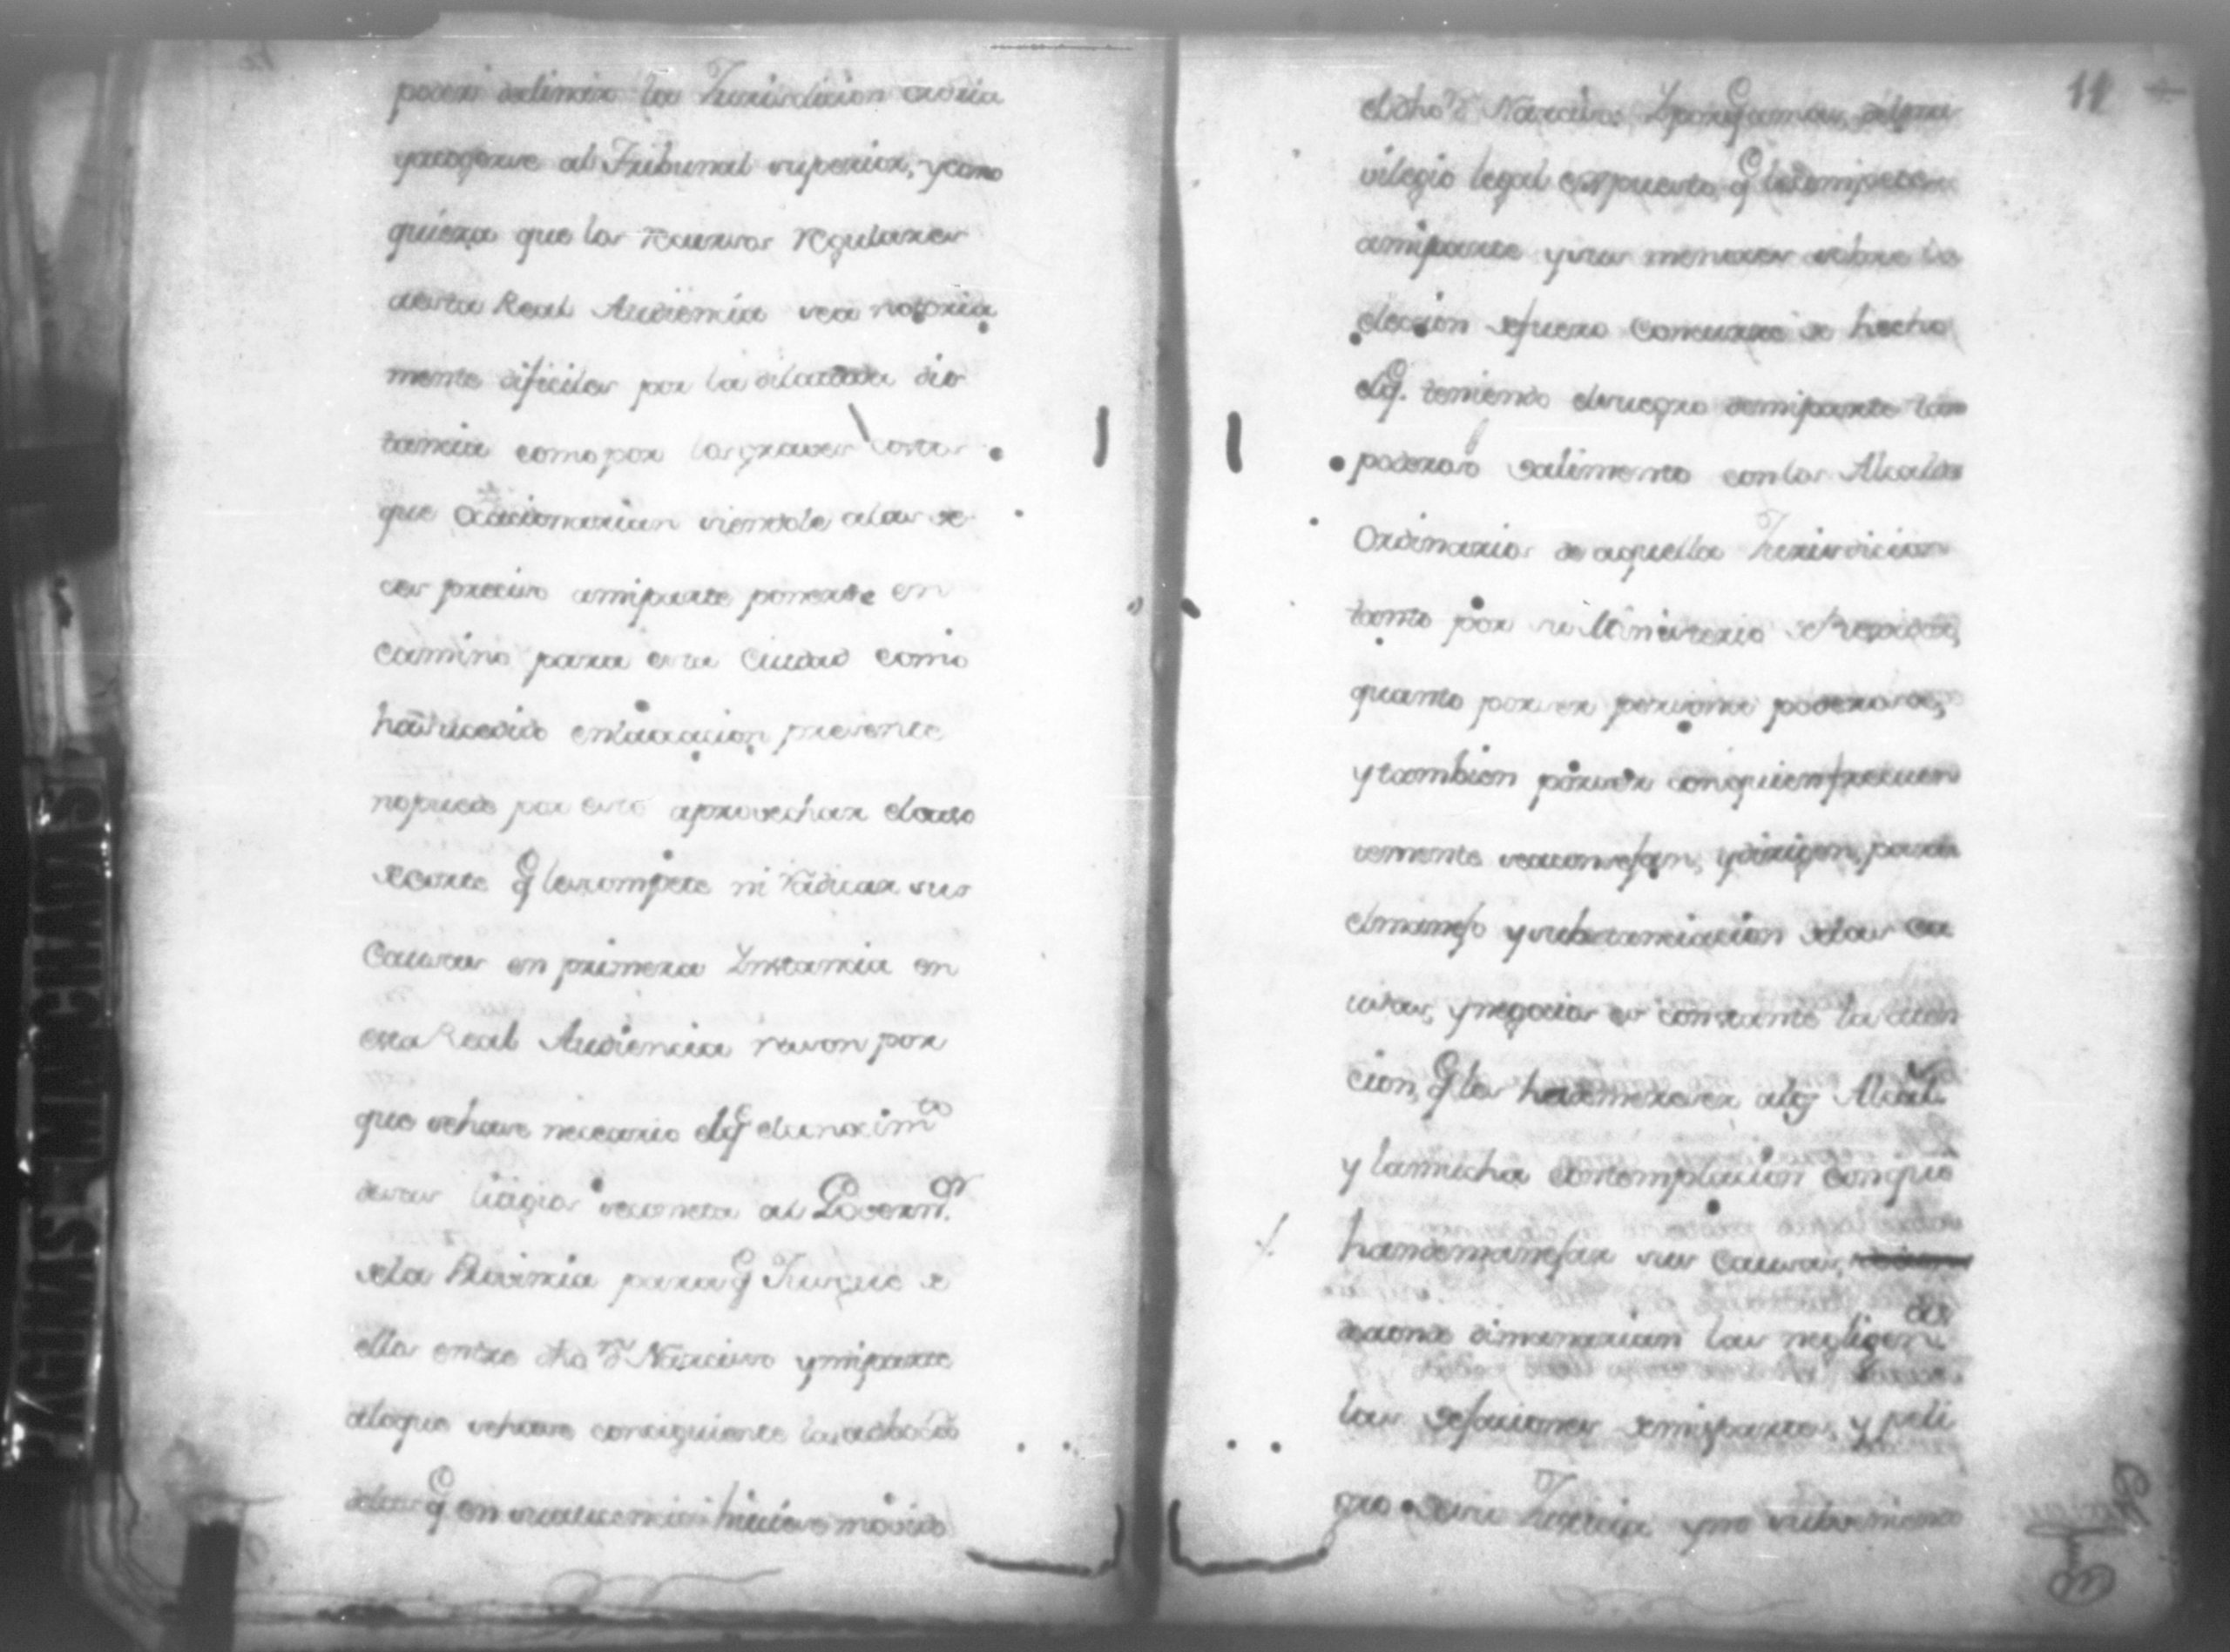 poder declinar la Jurisdicion ordin.a
yacogerse al Tribunal superior, y como
quiera que los recursos regulares
aesta Real Audiencia sea notoria
mente dificiles por la dilatada dis
tancia como por los graves costos
que ocacionarian siendole alas ve
ces preciso amiparte ponerse en
camino para esta Ciudad como
hasucedido enlaocacion presente
nopuede por esto aprovechar el caso
decorte q lescompete ni radicar sus
Causas en primera Instancia en
esta Real Audiencia rason por
que sehase necesario elq elconosim.to
desus litigios secometa al Govern.or
dela Provincia para q Jusgue de
ellos entre dho D.n Narciso ymiparte
aloque sehase consiguiente la
q en hubiese movido
eldho D.n Narciso: Y por q amas del pri
vilegio legal espuesto q lecompete
amiparte ysus menores sobre la
eleccion defuero concurre de hecho
elq. teniendo elsuegro demiparte tan
poderoso valimento con los Alcaldes
Ordinarios de aquella Jurisdicion
tanto por su Ministerio de Regidor,
quanto porser persona poderosa,
y tambien porser conquien frecuen
temente seaconsejan, y dirigen, para
elmanejo ysubstanciacion delas Ca
usas, y negocios es constante la aten
cion, q les hademereser alos Alcald.s
y lamucha contemplacion conque
handemanejar sus Causas,
dedonde dimanarian las negligen
cias
las vejaciones demiparte, y peli
gro desu Justicia yno
11
PAGINAS MANCHADAS